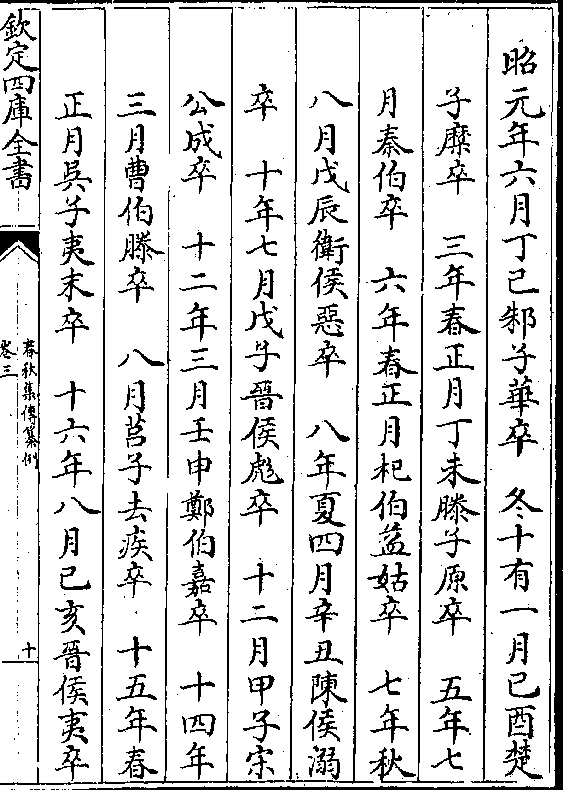 昭元年六月丁巳邾子華卒　冬十有一月己酉楚
子麇卒　三年春正月丁未滕子原卒　五年七
月秦伯卒　六年春正月杞伯益姑卒　七年秋
八月戊辰衛侯惡卒　八年夏四月辛丑陳侯溺
卒　十年七月戊子晉侯彪卒　十二月甲子宋
公成卒　十二年三月壬申鄭伯嘉卒　十四年
三月曹伯滕卒　八月莒子去疾卒　十五年春
正月吳子夷末卒　十六年八月己亥晉侯夷卒
欽定四庫全書
春秋集傳纂例
卷三
十